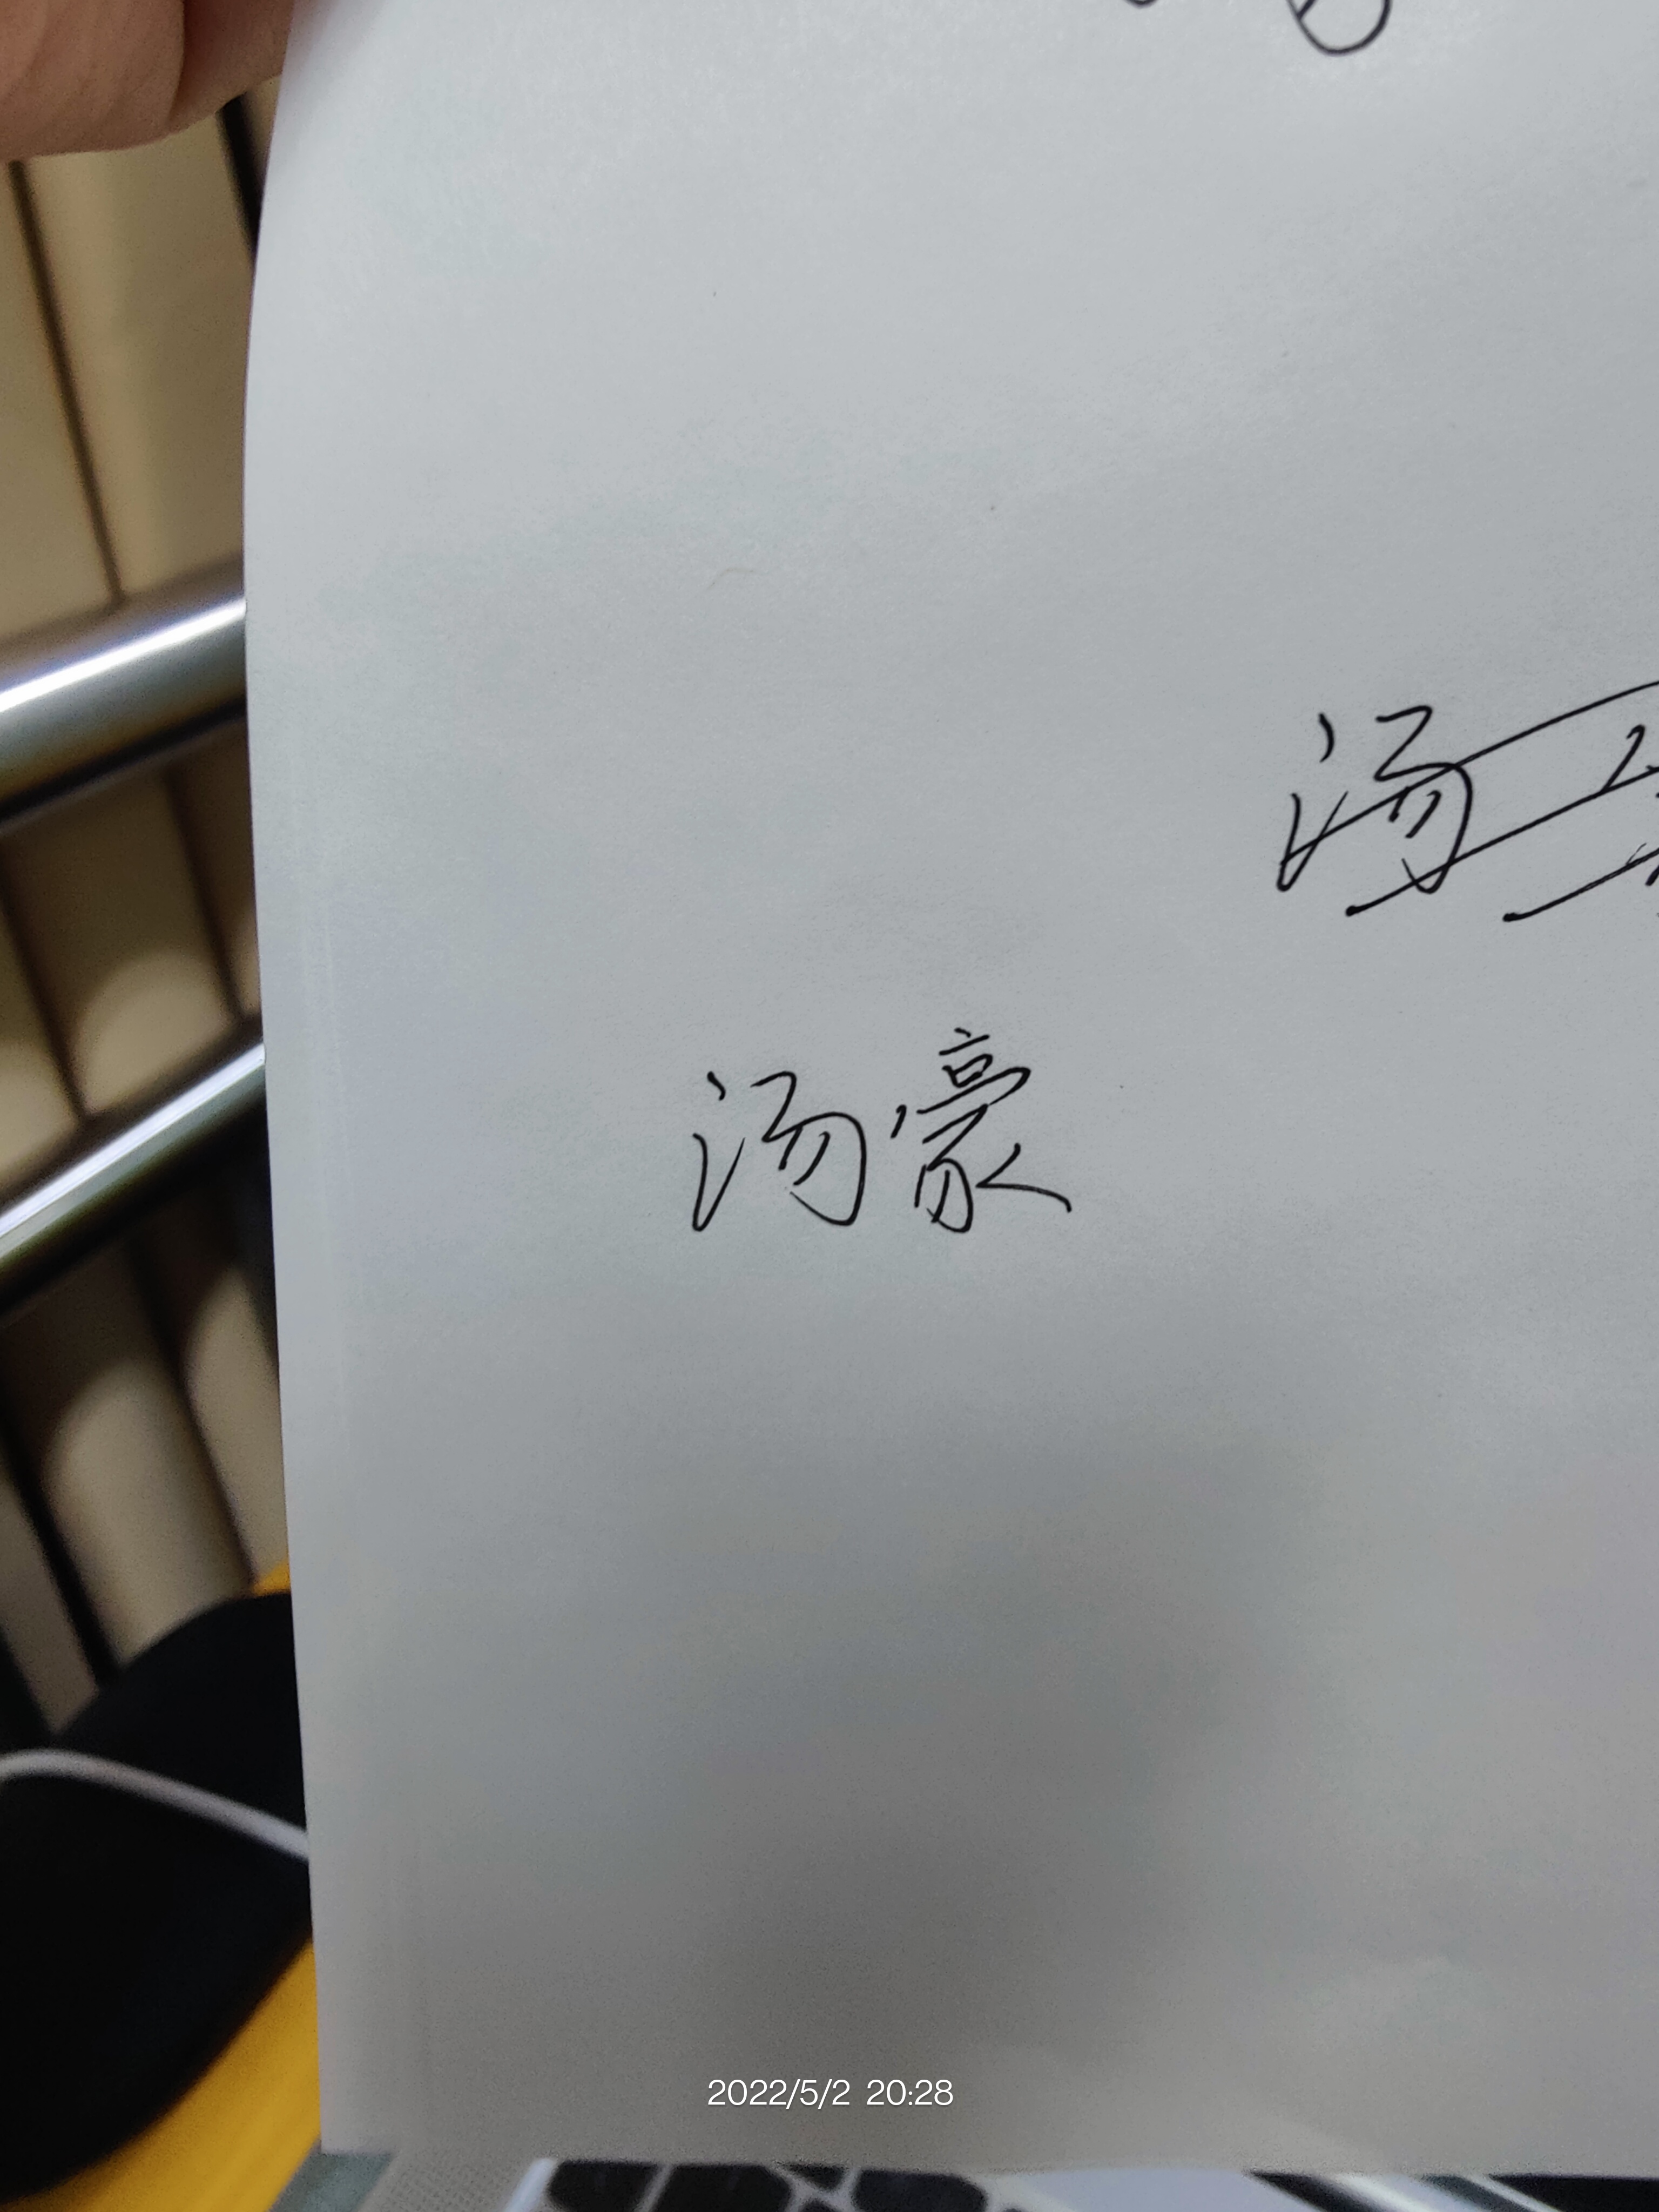 汤
汤豪
2022/5/2 20:28